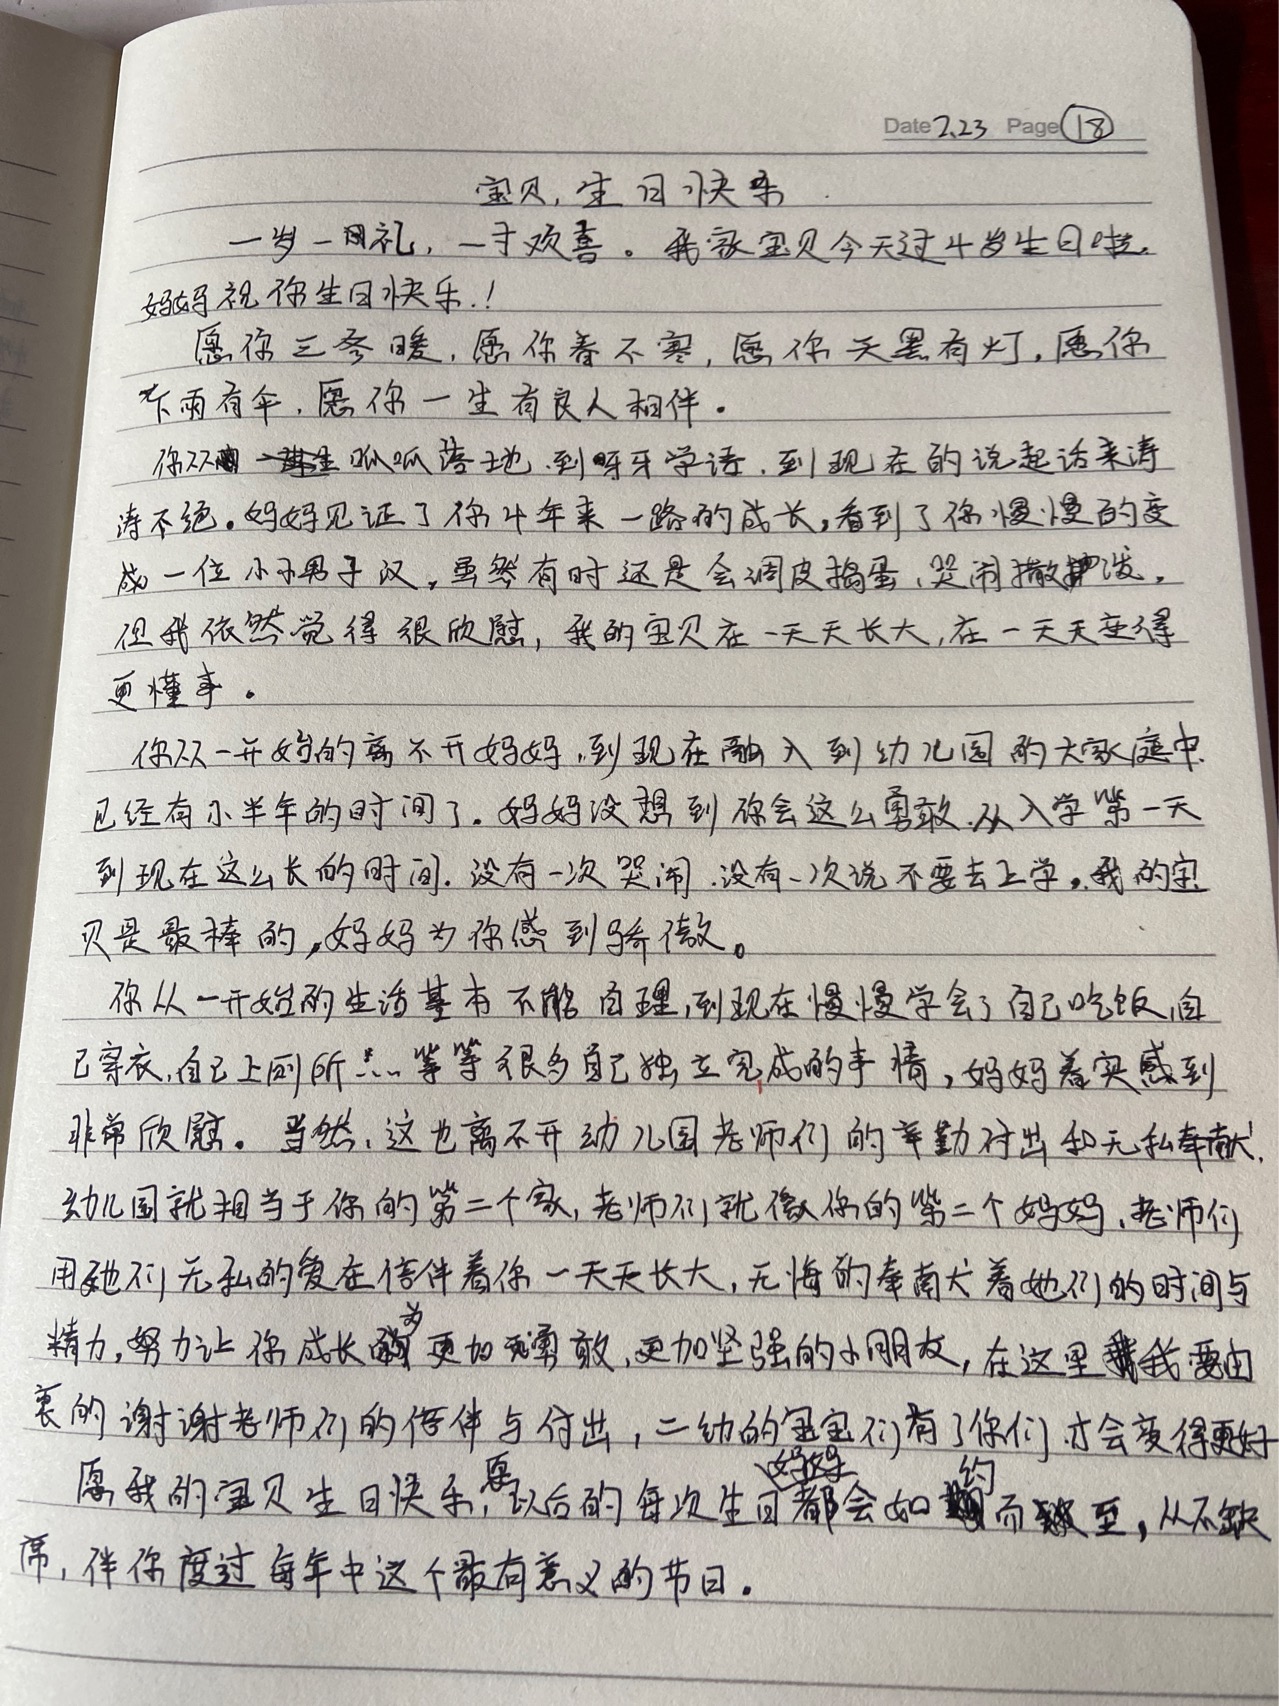 Date 7.23 Page 18
宝贝,生日快乐
一岁一礼,一寸欢喜。我家宝贝今天过4岁生日啦,
妈妈祝你生日快乐!
愿你三冬暖,愿你春不寒,愿你天黑有灯,愿你
下雨有伞,愿你一生有良人相伴。
你从呱呱落地,到呀牙学语,到现在的说起话来涛
涛不绝。妈妈见证了你4年来一路的成长,看到了你慢慢的变
成一位小小男子汉,虽然有时还是会调皮捣蛋、哭闹撒泼,
但我依然觉得很欣慰,我的宝贝在一天天长大,在一天天变得
更懂事。
你从一开始的离不开妈妈,到现在融入到幼儿园的大家庭中,
已经有小半年的时间了。妈妈没想到你会这么勇敢,从入学第一天
到现在这么长的时间,没有一次哭闹,没有一次说不要去上学。我的宝
贝是最棒的,妈妈为你感到骄傲。
你从一开始的生活基本不能自理,到现在慢慢学会了自己吃饭,自
己穿衣,自己上厕所……等等很多自己独立完成的事情,妈妈着实感到
非常欣慰。当然,这也离不开幼儿园老师们的辛勤付出和无私奉献,
幼儿园就相当于你的第二个家,老师们就像你的第二个妈妈,老师们
用她们无私的爱在陪伴着你一天天长大,无悔的奉献着她们的时间与
精力,努力让你成长为更加勇敢,更加坚强的小朋友,在这里我要由
衷的谢谢老师们的陪伴与付出,二幼的宝宝们有了你们才会变得更好
愿我的宝贝生日快乐,愿以后的每次生日都会如约而至,从不缺
席,伴你度过每年中这个最有意义的节日。